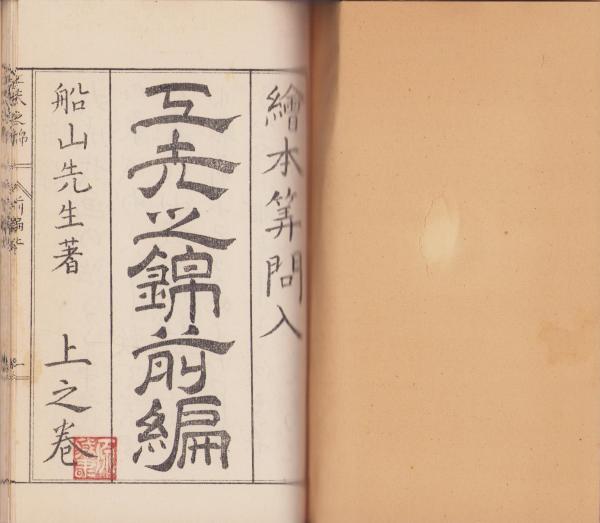 繪本筭問入
工夫之錦前編
船山先生著 上之卷